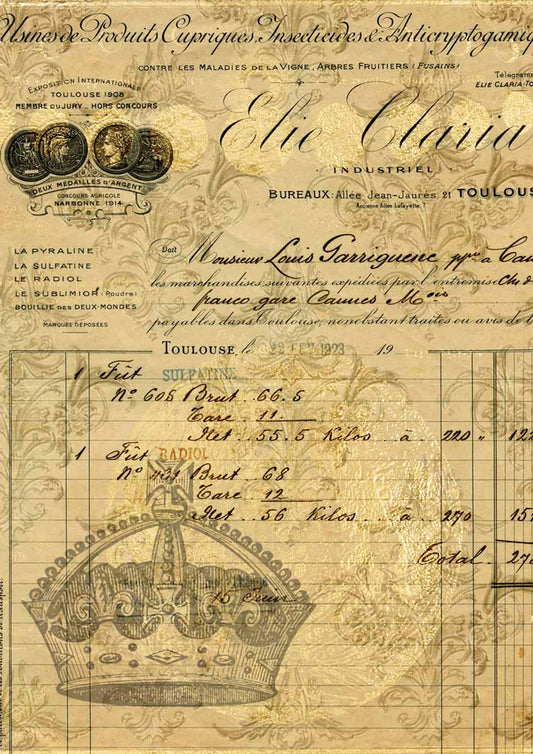 Usines de Produits Cupriques, Insecticides & Anticryptogamiq
CONTRE LES MALADIES DE LA VIGNE, ARBRES FRUITIERS (FUSAINS)
Télégram
ELIE CLARIA-TO
EXPOSITION INTERNATIONALE
TOULOUSE 1908
MEMBRE DU JURY HORS CONCOURS
DEUX MÉDAILLES D'ARGENT
CONCOURS AGRICOLE
NARBONNE 1914
Elie Claria
INDUSTRIEL
BUREAUX: Allée Jean-Jaurès, 21 TOULOUS
Ancienne Allée Lafayette
LA PYRALINE
LA SULFATINE
LE RADIOL
LE SUBLIMIOR (Poudre)
BOUILLIE DES DEUX-MONDES
MARQUES DÉPOSÉES
Doit Monsieur Louis Garriguenc à Cau
les marchandises suivantes expédiées par l'entremise Ch. d
franco gare Caunes
payables dans Toulouse, nonobstant traites ou avis de t
TOULOUSE, le 1923 19
1 Fût SULFATINE
N° 608 Brut 66.5
Tare 11
Net 55.5 Kilos à 220 " 122
1 Fût RADIOL
N° Brut 68
Tare 12
Net 56 Kilos à 270 15
Total 27
15 Juin